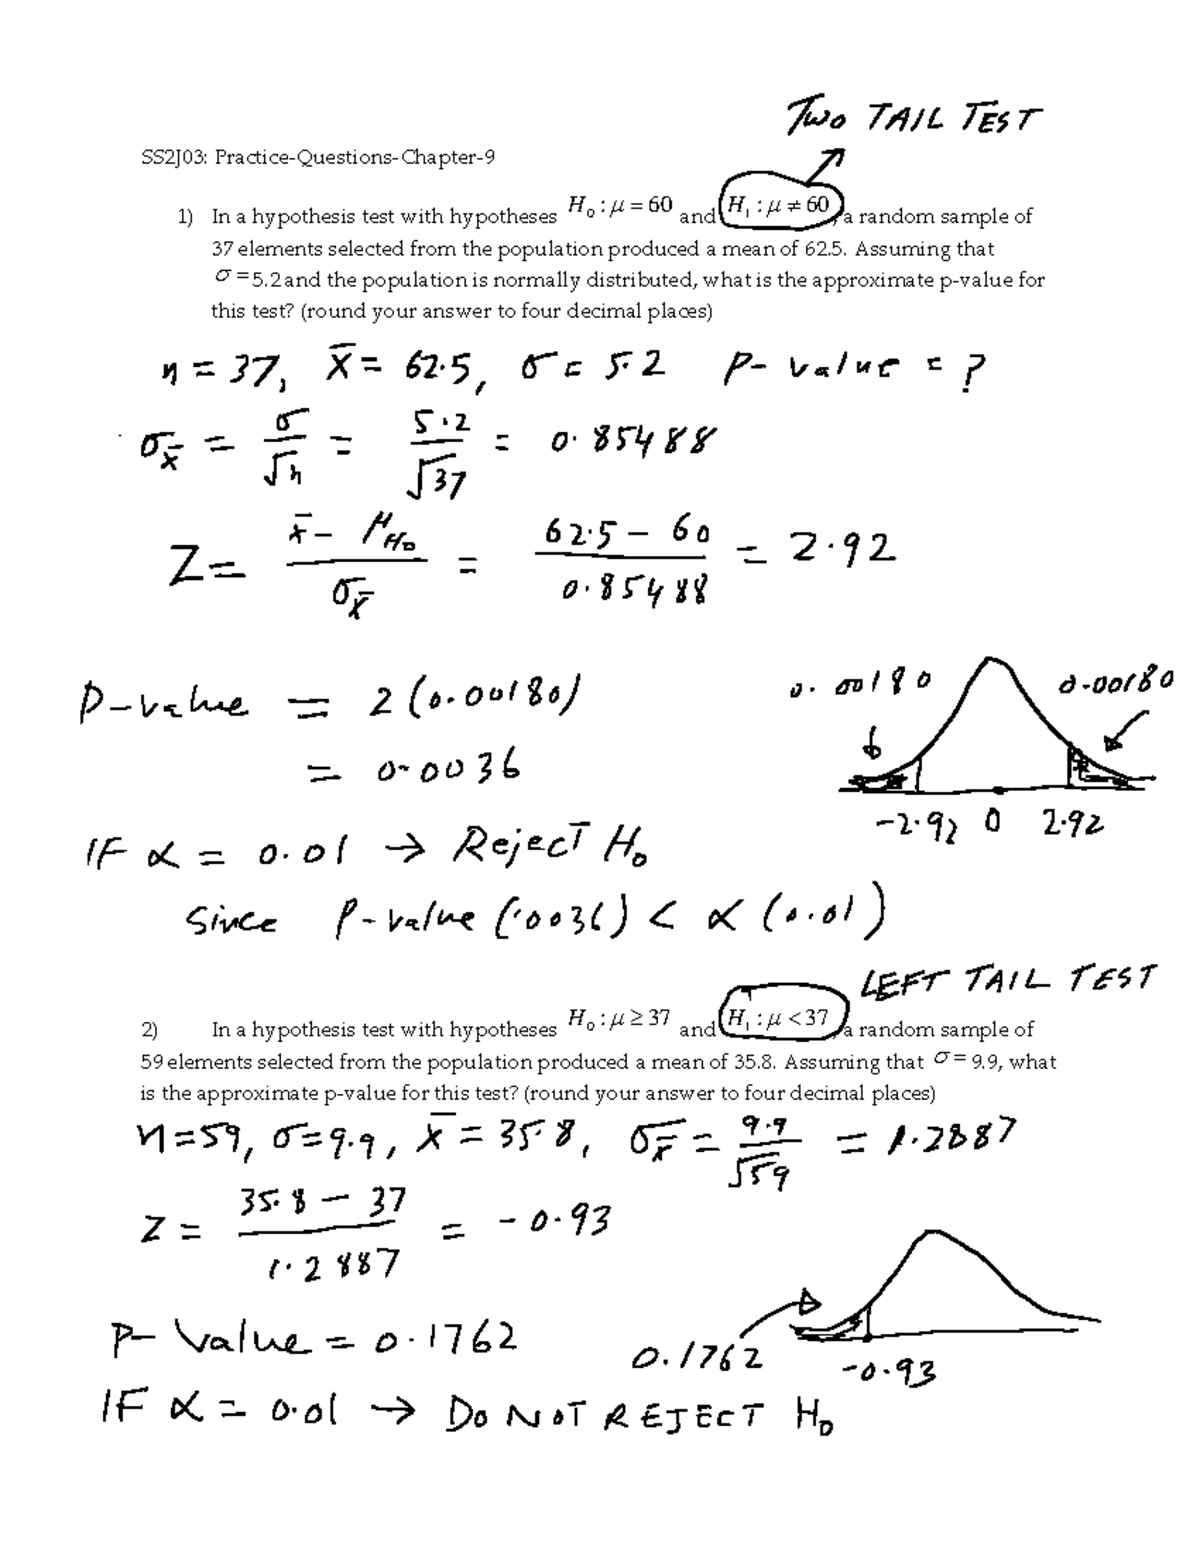 TWO TAIL TEST
SS2J03: Practice-Questions-Chapter-9
1) In a hypothesis test with hypotheses H₀ : μ = 60 and H₁ : μ ≠ 60, a random sample of
37 elements selected from the population produced a mean of 62.5. Assuming that
σ = 5.2 and the population is normally distributed, what is the approximate p-value for
this test? (round your answer to four decimal places)
n = 37, x̄ = 62.5, σ = 5.2 P-value = ?
σx̄ = σ/√n = 5.2/√37 = 0.85488
Z = (x̄ - μH₀)/σx̄ = (62.5 - 60)/0.85488 = 2.92
P-value = 2(0.00180)
= 0.0036
0.00180 0.00180
-2.92 0 2.92
IF α = 0.01 → Reject H₀
Since P-value (.0036) < α (0.01)
LEFT TAIL TEST
2) In a hypothesis test with hypotheses H₀ : μ ≥ 37 and H₁ : μ < 37, a random sample of
59 elements selected from the population produced a mean of 35.8. Assuming that σ = 9.9, what
is the approximate p-value for this test? (round your answer to four decimal places)
n=59, σ=9.9, x̄ = 35.8, σx̄ = 9.9/√59 = 1.2887
Z = (35.8 - 37)/1.2887 = -0.93
P-Value = 0.1762
0.1762 -0.93
IF α = 0.01 → DO NOT REJECT H₀